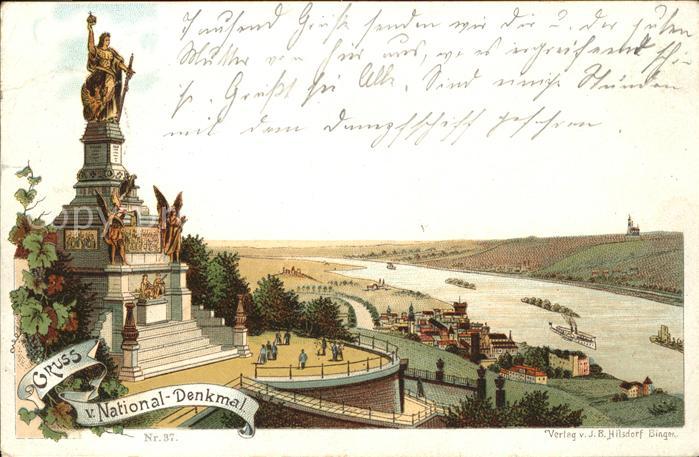 Tausend Grüße senden wir dir u. der guten
Mutter von hier aus, wo es ergreifend schö-
n ist. Grüßt sie Alle. Sind einige Stunden
mit dem Dampfschiff gefahren.
Gruss
v. National-Denkmal.
Nr. 37.
Verlag v. J. B. Hilsdorf Bingen.